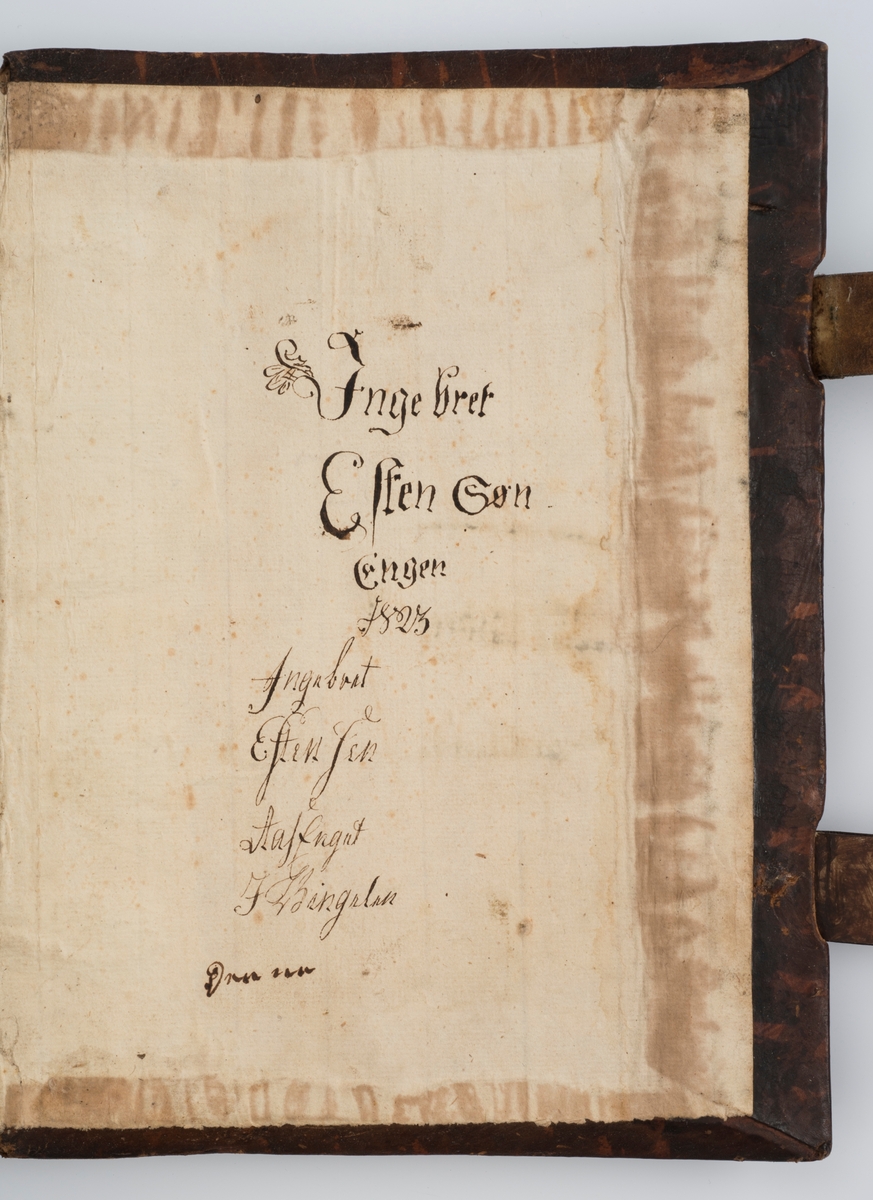 Ingebret
Esten Søn
Engen
1823
Ingebret
Esten Sen
Aas Enget
I Vingelen
Den ne